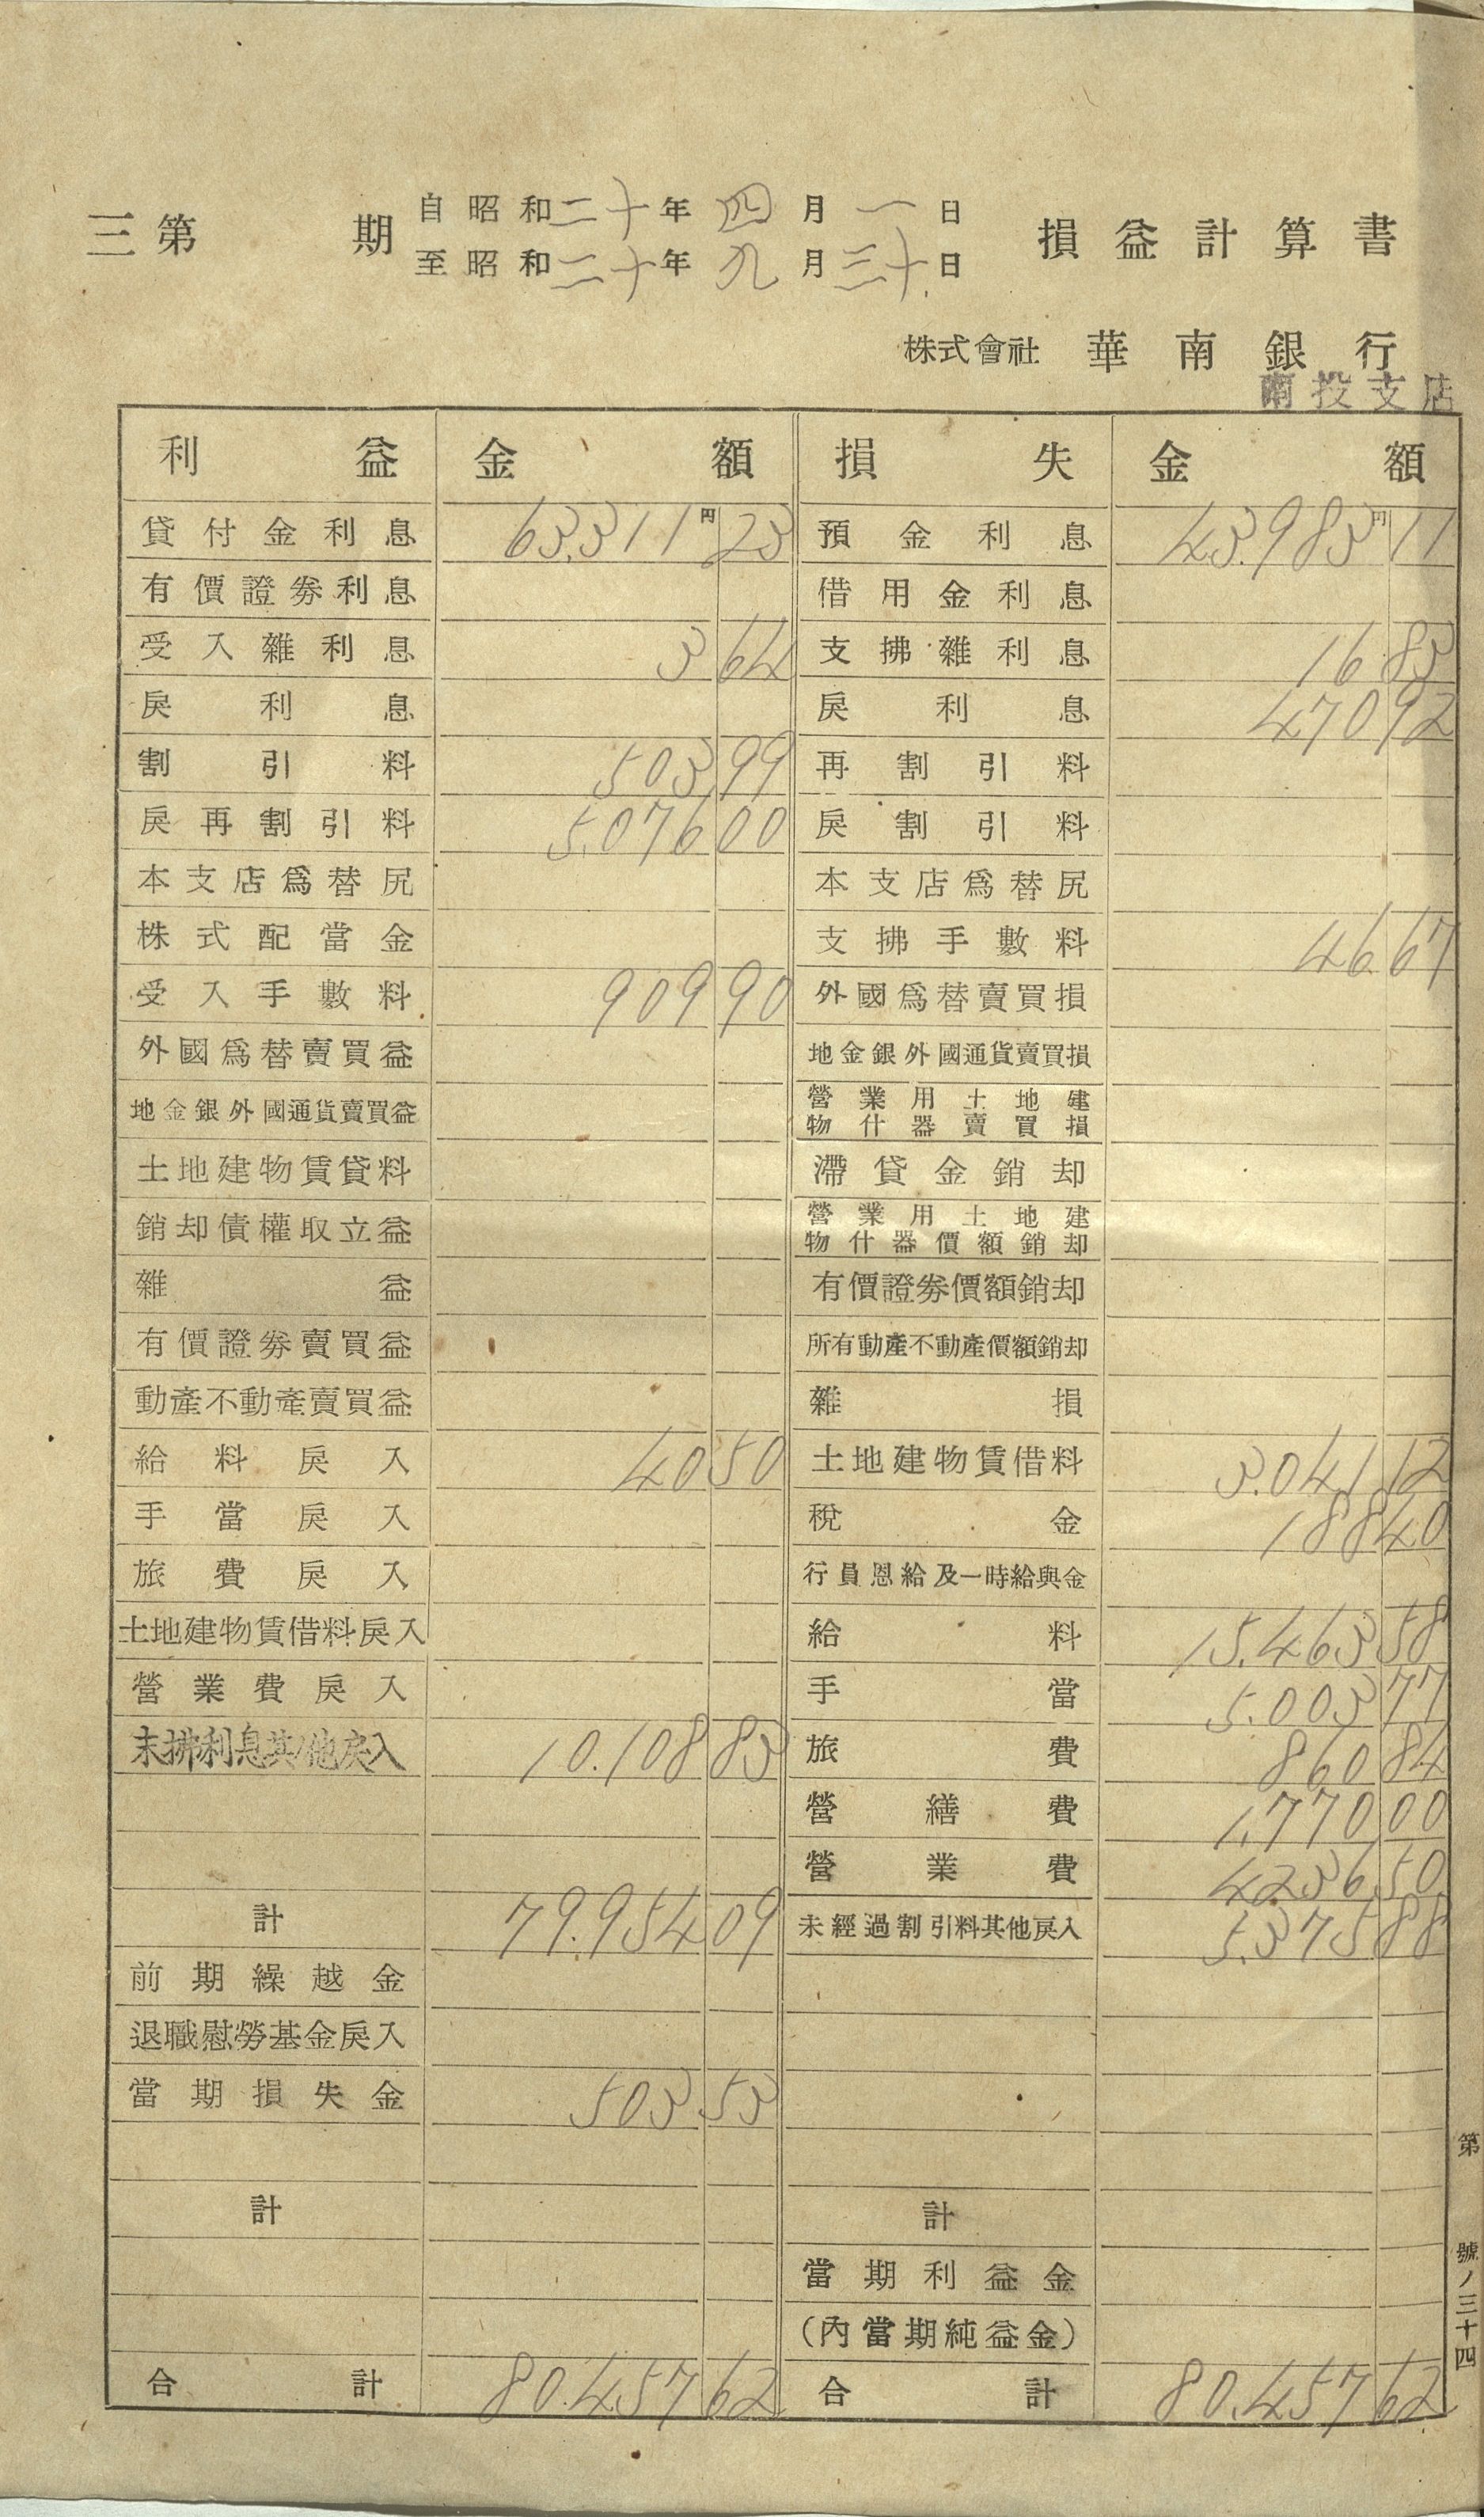 三第　期 自昭和二十年四月一日 損益計算書
至昭和二十年九月三十日
株式會社 華南銀行
南投支店
利益 金額 損失 金額
貸付金利息 63.311円23 預金利息 43.983円11
有價證券利息 借用金利息
受入雜利息 3 64 支拂雜利息 16 83
戾利息 戾利息 470 92
割引料 503 99 再割引料
戾再割引料 5.076 00 戾割引料
本支店爲替尻 本支店爲替尻
株式配當金 支拂手數料 46 67
受入手數料 909 90 外國爲替賣買損
外國爲替賣買益 地金銀外國通貨賣買損
地金銀外國通貨賣買益 營業用土地建物什器賣買損
土地建物賃貸料 滯貸金銷却
銷却債權取立益 營業用土地建物什器價額銷却
雜益 有價證券價額銷却
有價證券賣買益 所有動產不動產價額銷却
動產不動產賣買益 雜損
給料戾入 40 50 土地建物賃借料 3.041 12
手當戾入 稅金 188 40
旅費戾入 行員恩給及一時給與金
土地建物賃借料戾入 給料 15.463 58
營業費戾入 手當 5.003 77
未拂利息其ノ他戾入 10.108 83 旅費 860 84
營繕費 1.770 00
營業費 4.236 50
計 79.954 09 未經過割引料其他戾入 5.375 88
前期繰越金
退職慰勞基金戾入
當期損失金 503 53
計 計
當期利益金
(內當期純益金)
合計 80.457 62 合計 80.457 62
第　號ノ三十四